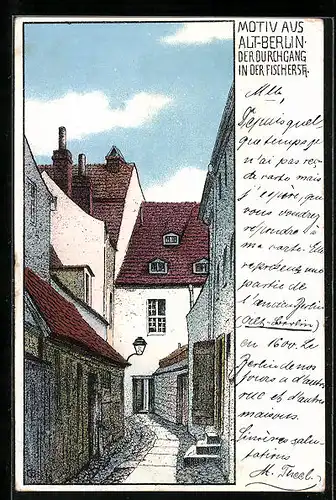 MOTIV AUS
ALT-BERLIN·
DER DURCHGANG
IN DER FISCHERSTR.
Mlle,
Depuis quel-
que temps je
n'ai pas reçu
de carte mais
j'espère, que
vous voudrez
répondre à
ma carte. Elle
représente une
partie de
l'ancien Berlin
(Alt-Berlin)
en 1600. Le
Berlin de nos
jours a d'autres
rue et d'autres
maisons.
Sincères salu-
tations
M.